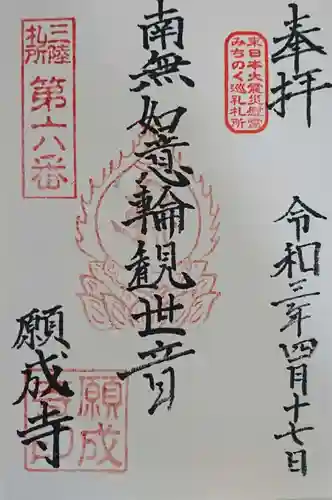 奉拝
東日本大震災慰霊
みちのく巡礼札所
令和三年四月十七日
南無如意輪観世音
三陸
札所
第六番
願成寺
願成
寺印